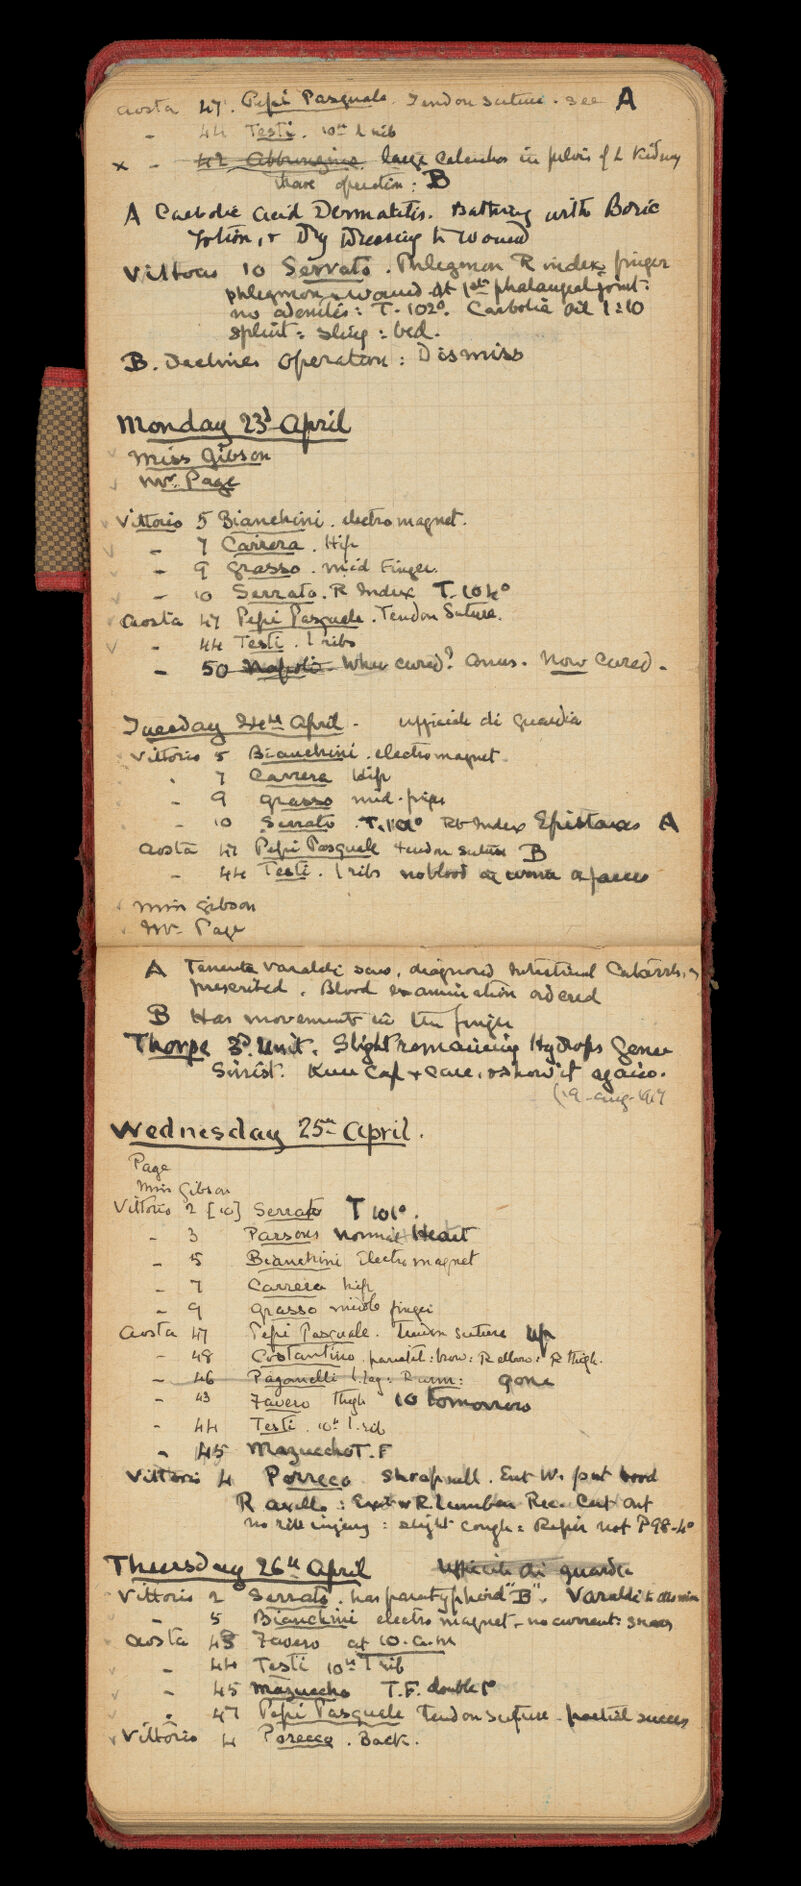 Aosta 47. Pepi Pasquale. Tendon suture. see A
- 44 Testi. 10th L rib
x - 42 large calculus in pelvis of L Kidney
operation: B
A Carbolic acid Dermatitis. Bathing with Boric
lotion, & Dry Dressing to wound
Vittorio 10 Serrato. Phlegmon R index finger
phlegmon & wound at 1st phalangeal joint:
no adenitis: T-102°. Carbolic oil 1:10
splint: sling: bed.
B. Declines operation: Dismiss
Monday 23d April
Miss Gibson
Mr. Page
Vittorio 5 Bianchini. electromagnet.
- 7 Carrera. Hip
- 9 Grasso. mid Finger.
- 10 Serrato. R Index T. 104°
Aosta 47 Pepi Pasquale. Tendon Suture.
- 44 Testi. L ribs
- 50 Napoli. When cured? Anus. Now cured.
Tuesday 24th April - Ufficiale di Guardia
Vittorio 5 Bianchini. electromagnet
- 7 Carrera Hip
- 9 Grasso mid-finger
- 10 Serrato T. 101° Rt Index Epistaxis A
Aosta 47 Pepi Pasquale tendon suture B
- 44 Testi. L ribs no blood faeces
Miss Gibson
Mr. Page
A Tenente Varaldi saw, diagnosed Intestinal Catarrh, &
prescribed. Blood examination ordered
B Has movement in the finger
Thorpe 3d. Unit. Slight remaining Hydrops Genu
Sinist. Knee Cap & care, & show it again.
(19-Aug-1917
Wednesday 25th April.
Page
Miss Gibson
Vittorio 2 [10] Serrato T 101°.
- 3 Parsons normal Heart
- 5 Bianchini Electromagnet
- 7 Carrera hip
- 9 Grasso middle finger
Aosta 47 Pepi Pasquale. Tendon suture up
- 48 Costantino. parietal: brow: R elbow: R thigh.
- 46 Paganelli L leg: R arm: gone
- 43 Zavero thigh 10 tomorrow
- 44 Testi. 10th L rib
- 45 Mazuecho T.F
Vittorio 4 Porreca shrapnell. Ent W. post bord
R axilla: Exit w R Lumbar Reg. Cut out
no rib injury: slight cough: Resp not P98-4°
Thursday 26th April Ufficiale di guardia
Vittorio 2 Serrato. has paratyphoid "B". Varaldi to
- 5 Bianchini electro magnet - no current:
Aosta 43 Zavero at 10. a.m
- 44 Testi 10th L rib
- 45 Mazuecho T.F. double
- 47 Pepi Pasquale Tendon suture - partial success
Vittorio 4 Poreca. Back.